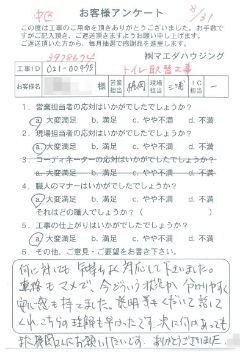 お客様アンケート
8/31
この度は工事のご用命を頂きありがとうございました。お手数で
すがご記入頂き、ご返送頂きますようお願い申し上げます。
ご返送頂いた方から、毎月抽選で感謝品を進呈します。
㈱マエダハウジング
トイレ取替工事
工事ID 021-00495
お客様名 様 営業担当 現場担当 IC担当 ー
1. 営業担当者の応対はいかがでしたでしょうか?
a. 大変満足 b. 満足 c. やや不満 d. 不満
2. 現場担当者の応対はいかがでしたでしょうか?
a. 大変満足 b. 満足 c. やや不満 d. 不満
3. コーディネーターの応対はいかがでしたでしょうか?
a. 大変満足 b. 満足 c. やや不満 d. 不満
4. 職人のマナーはいかがでしたでしょうか?
a. 大変満足 b. 満足 c. やや不満 d. 不満
それはどの職人でしょうか( )
5. 工事の仕上がりはいかがでしたでしょうか?
a. 大変満足 b. 満足 c. やや不満 d. 不満
6. その他、ご意見・ご要望をお書き下さい。
何に対しても気持よく対応して下さいました。
連絡もマメで、今どういう状況か分かりやすく
安心感も持てました。説明等もくだいて話して
くれ、こちらの理解も早かったです。次に何かあっても
またお願いしたいです。ありがとうございました